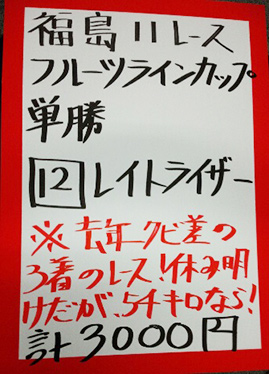 福島11レース
フルーツラインカップ
単勝
12 レイトライザー
※去年クビ差の
3着のレース!休み明
けだが、54キロなら!
計3000円